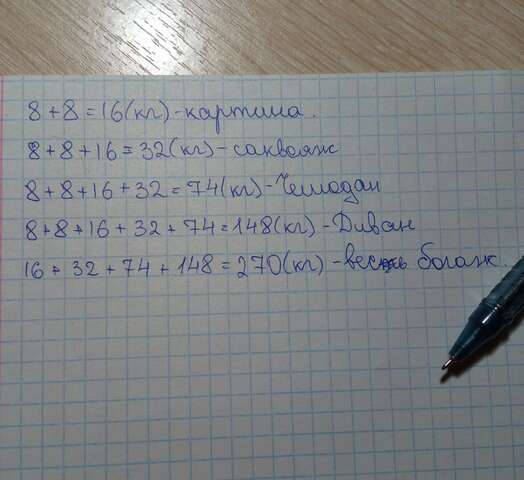 8+8=16(кг)-картина.
8+8+16=32(кг)-саквояж
8+8+16+32=74(кг)-Чемодан
8+8+16+32+74=148(кг)-Диван
16+32+74+148=270(кг)-весь богаж.